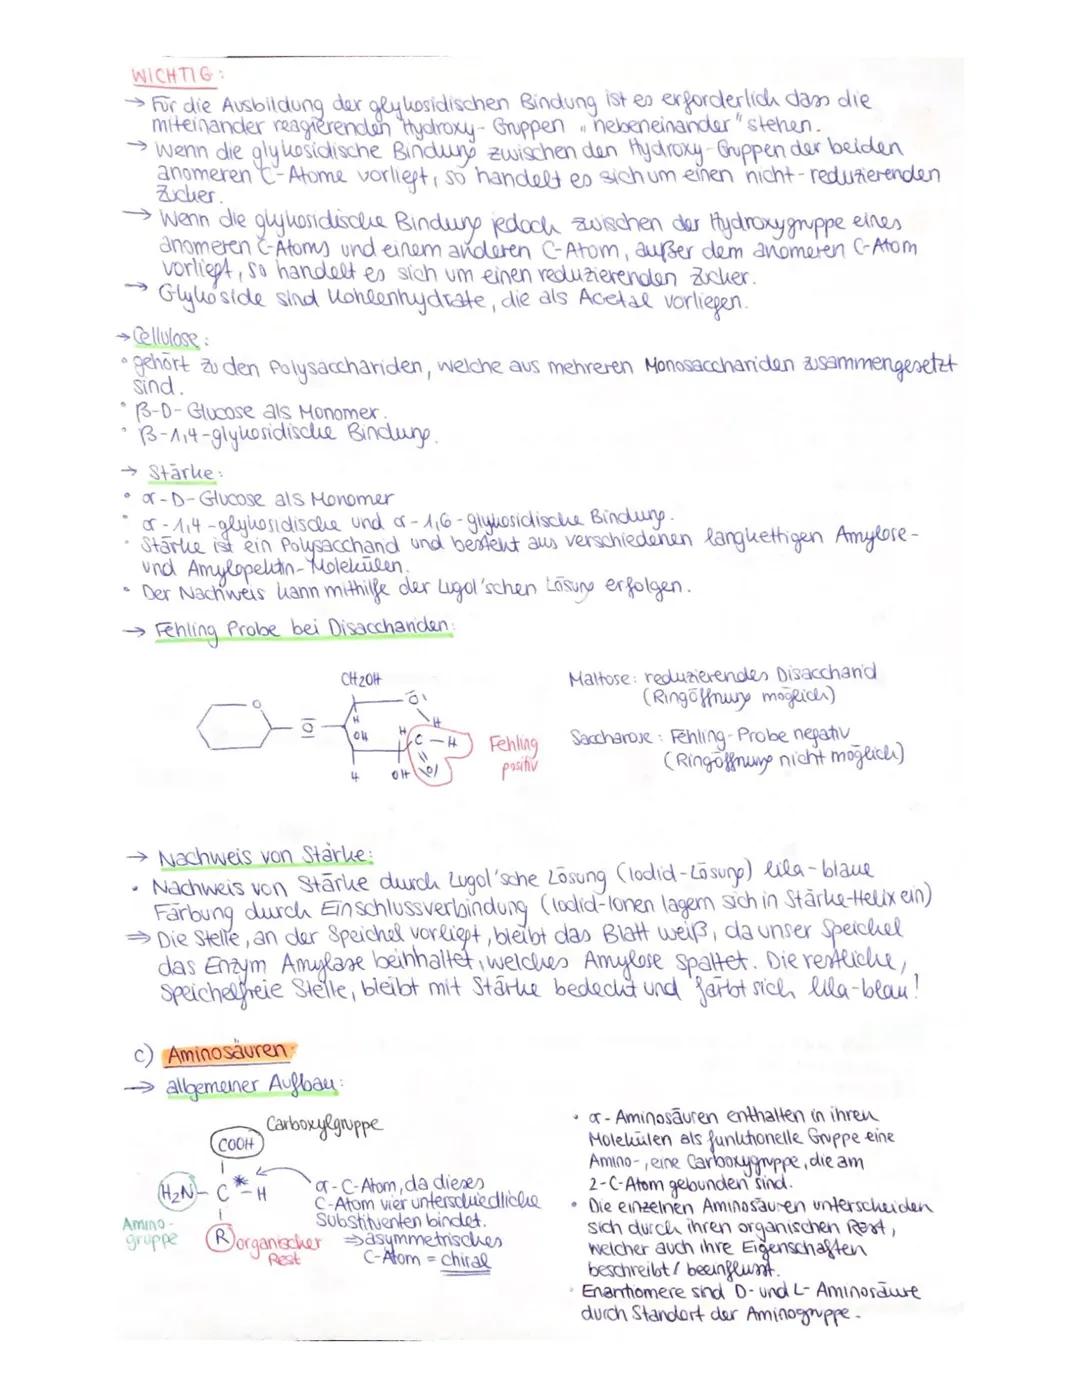 WICHTIG:
→ Für die Ausbildung der glykosidischen Bindung ist es erforderlich dass die
miteinander reagierenden Hydroxy-Gruppen „nebeneinander" stehen.
→ Wenn die glykosidische Bindung zwischen den Hydroxy-Gruppen der beiden
anomeren C-Atome vorliegt, so handelt es sich um einen nicht-reduzierenden
Zucker.
→ Wenn die glykosidische Bindung jedoch zwischen der Hydroxygruppe eines
anomeren C-Atoms und einem anderen C-Atom, außer dem anomeren C-Atom
vorliegt, so handelt es sich um einen reduzierenden Zucker.
→ Glykoside sind Kohlenhydrate, die als Acetal vorliegen.
→ Cellulose:
• gehört zu den Polysacchariden, welche aus mehreren Monosacchariden zusammengesetzt
sind.
• β-D-Glucose als Monomer.
• β-1,4-glykosidische Bindung.
→ Stärke:
• α-D-Glucose als Monomer
• α-1,4-glykosidische und α-1,6-glykosidische Bindung.
• Stärke ist ein Polysaccharid und besteht aus verschiedenen langkettigen Amylose-
und Amylopektin-Molekülen.
• Der Nachweis kann mithilfe der Lugol'schen Lösung erfolgen.
→ Fehling Probe bei Disacchariden:
CH2OH
O
O
H
OH
H
H
C-H
H
OH
O
Fehling
positiv
Maltose: reduzierendes Disaccharid
(Ringöffnung möglich)
Saccharose: Fehling-Probe negativ
(Ringöffnung nicht möglich)
→ Nachweis von Stärke:
• Nachweis von Stärke durch Lugol'sche Lösung (Iodid-Lösung) lila-blaue
Färbung durch Einschlussverbindung (Iodid-Ionen lagern sich in Stärke-Helix ein)
⇒ Die Stelle, an der Speichel vorliegt, bleibt das Blatt weiß, da unser Speichel
das Enzym Amylase beinhaltet, welches Amylose spaltet. Die restliche,
speichelfreie Stelle, bleibt mit Stärke bedeckt und färbt sich lila-blau!
c) Aminosäuren
→ allgemeiner Aufbau:
Carboxylgruppe
COOH
H2N-C*-H
Amino-
gruppe
R
organischer
Rest
α-C-Atom, da dieses
C-Atom vier unterschiedliche
Substituenten bindet.
⇒ asymmetrisches
C-Atom = chiral
• α-Aminosäuren enthalten in ihren
Molekülen als funktionelle Gruppe eine
Amino-, eine Carboxygruppe, die am
2-C-Atom gebunden sind.
• Die einzelnen Aminosäuren unterscheiden
sich durch ihren organischen Rest,
welcher auch ihre Eigenschaften
beschreibt/beeinflusst.
• Enantiomere sind D- und L-Aminosäure
durch Standort der Aminogruppe.